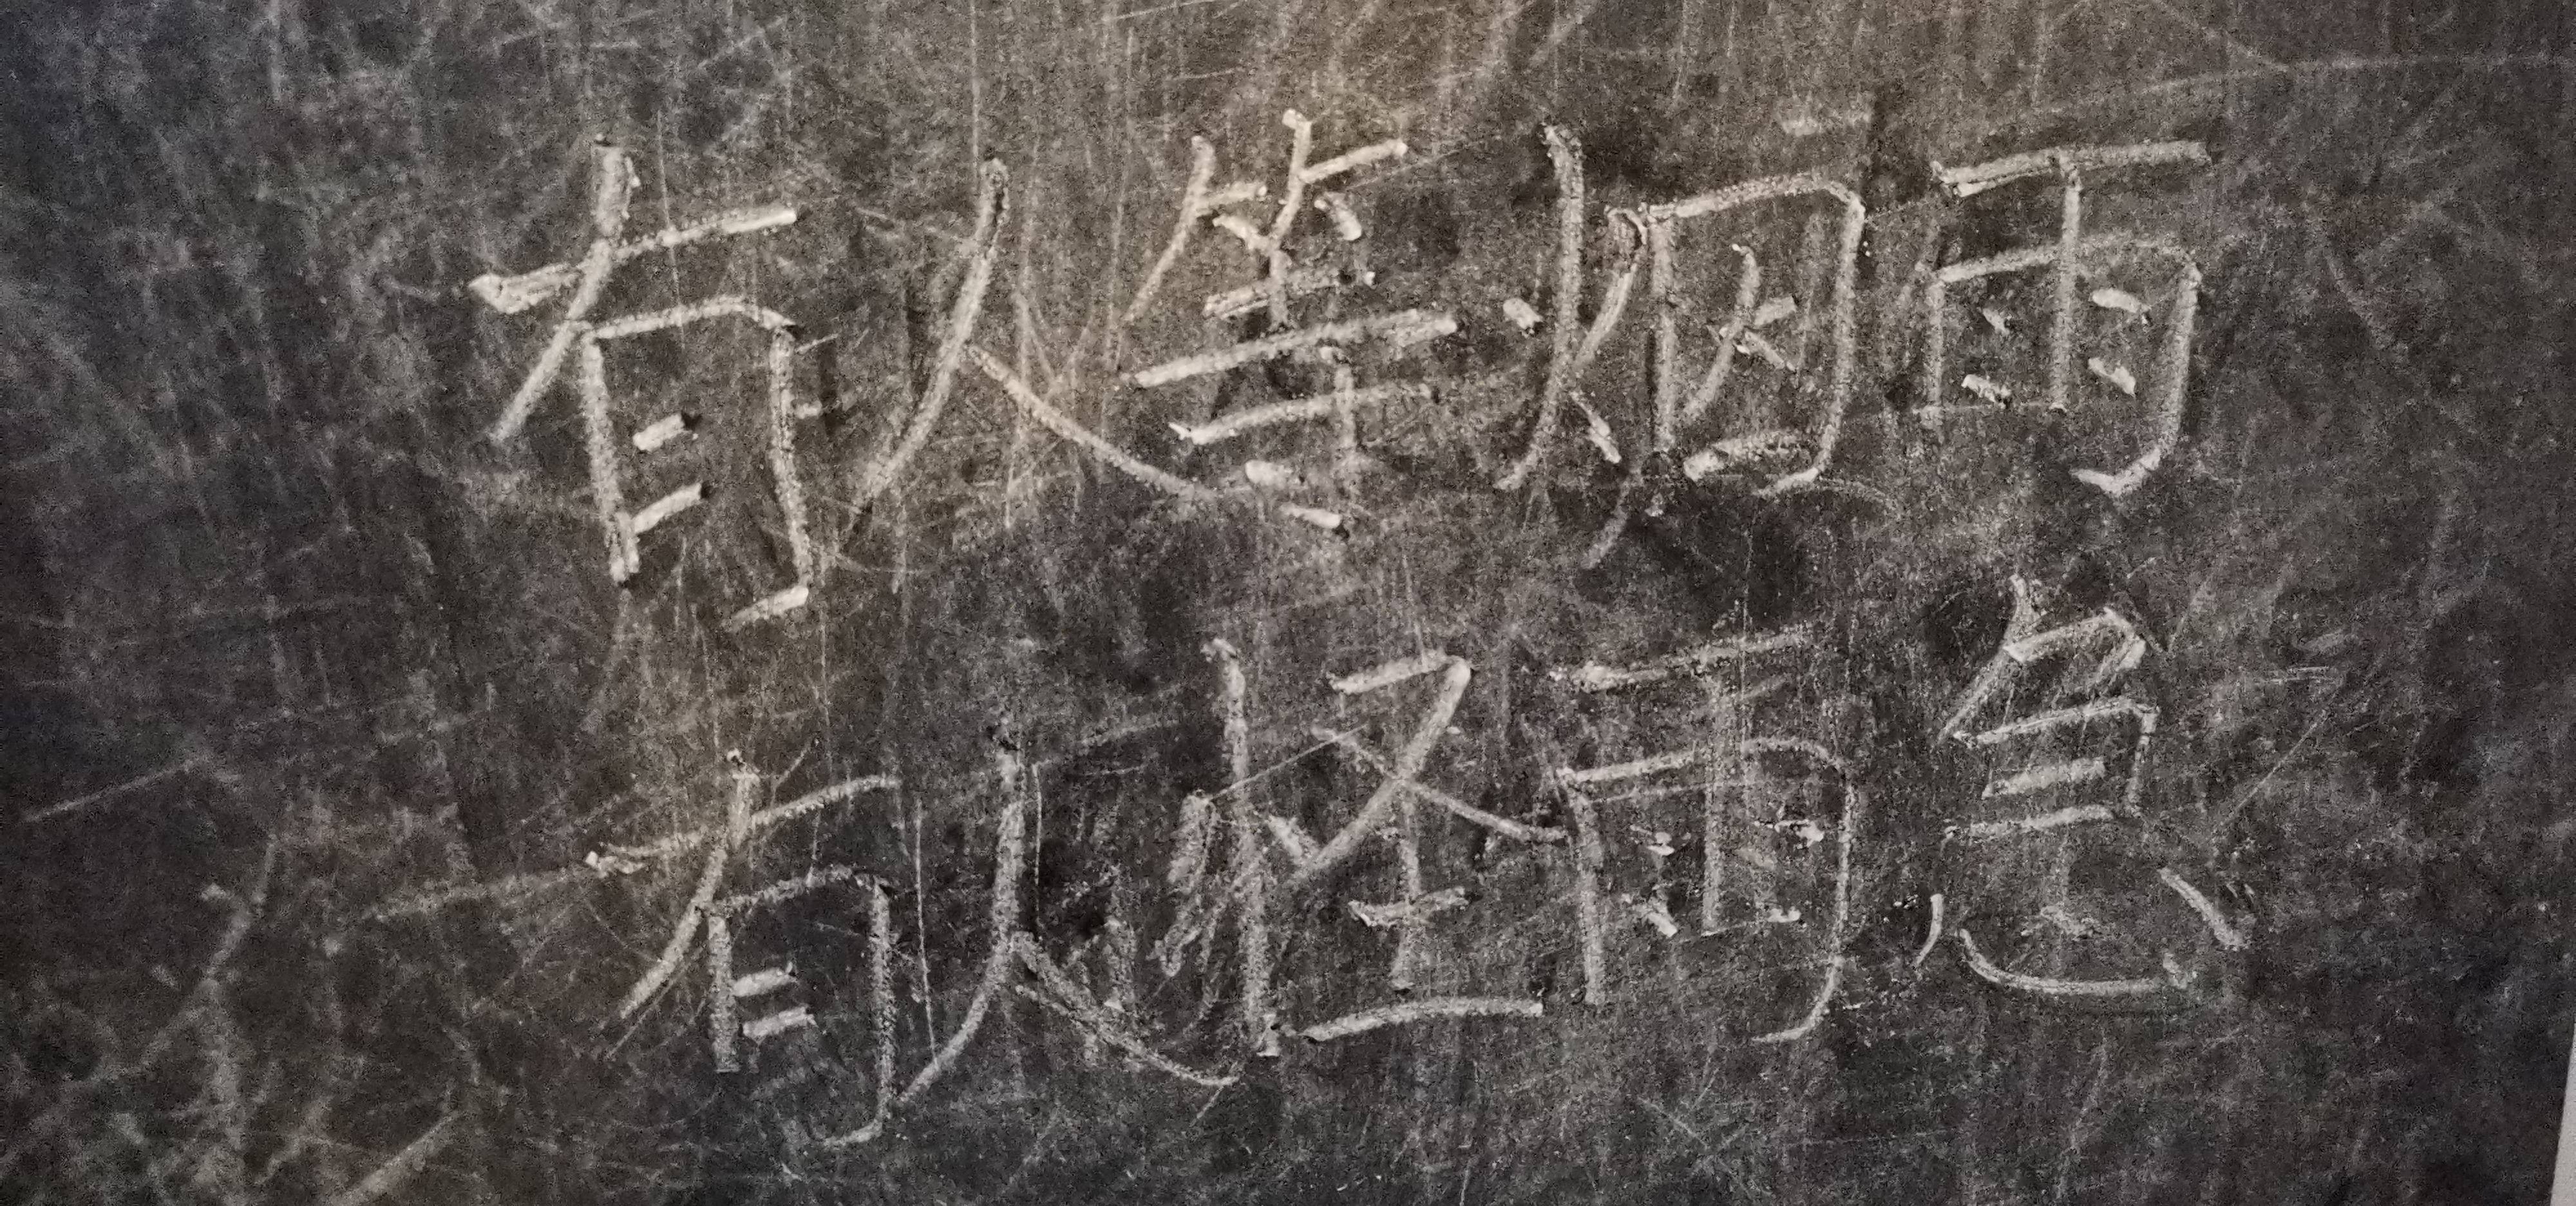 有人等烟雨
有人怪雨急